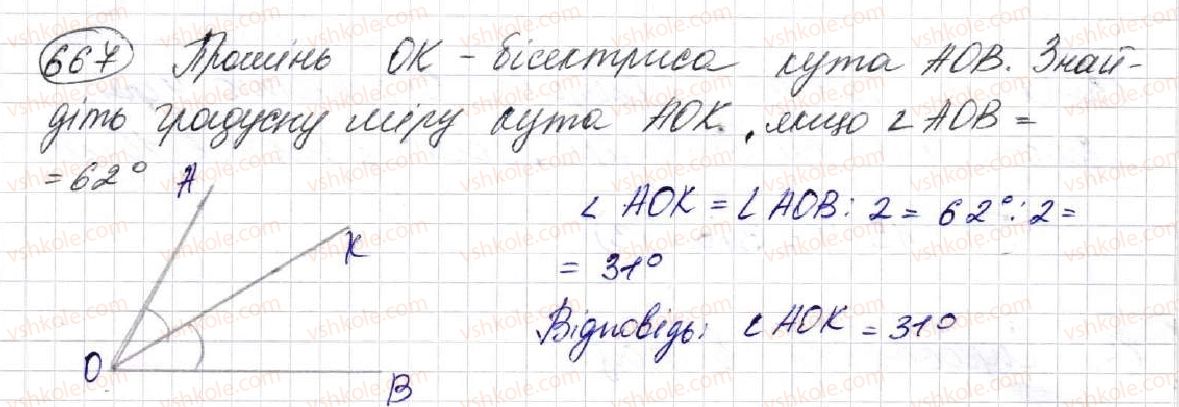 667 Промінь OK - бісектриса кута AOB. Знай-
діть градусну міру кута AOK, якщо ∠AOB =
= 62°
A
∠ AOK = ∠ AOB : 2 = 62° : 2 =
K
= 31°
Відповідь: ∠ AOK = 31°
O
B
vshkole.com